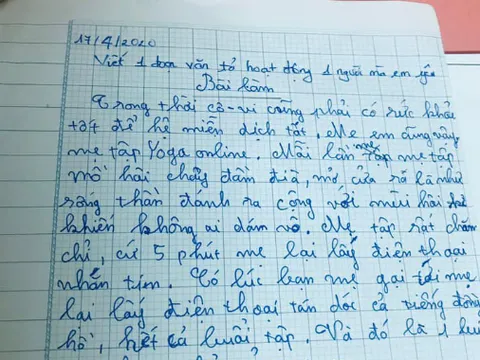 17/4/2020
Viết 1 đoạn văn tả hoạt động 1 người mà em yêu
Bài làm
Trong thời cô-vi cũng phải có sức khỏe
tốt để hệ miễn dịch tốt. Mẹ em cũng vậy
mẹ tập Yoga online. Mỗi lần mẹ tập mẹ tập
mồ hôi chảy đầm đìa, mở cửa ra là như
rồng thần đánh ra cộng với mùi hôi
khiến không ai dám vô. Mẹ tập rất chăm
chỉ, cứ 5 phút mẹ lại lấy điện thoại
nhắn tin. Có lúc bạn mẹ gọi tới mẹ
lại lấy điện thoại tán dóc cả tiếng đồng
hồ, hết cả buổi tập. Và đó là 1